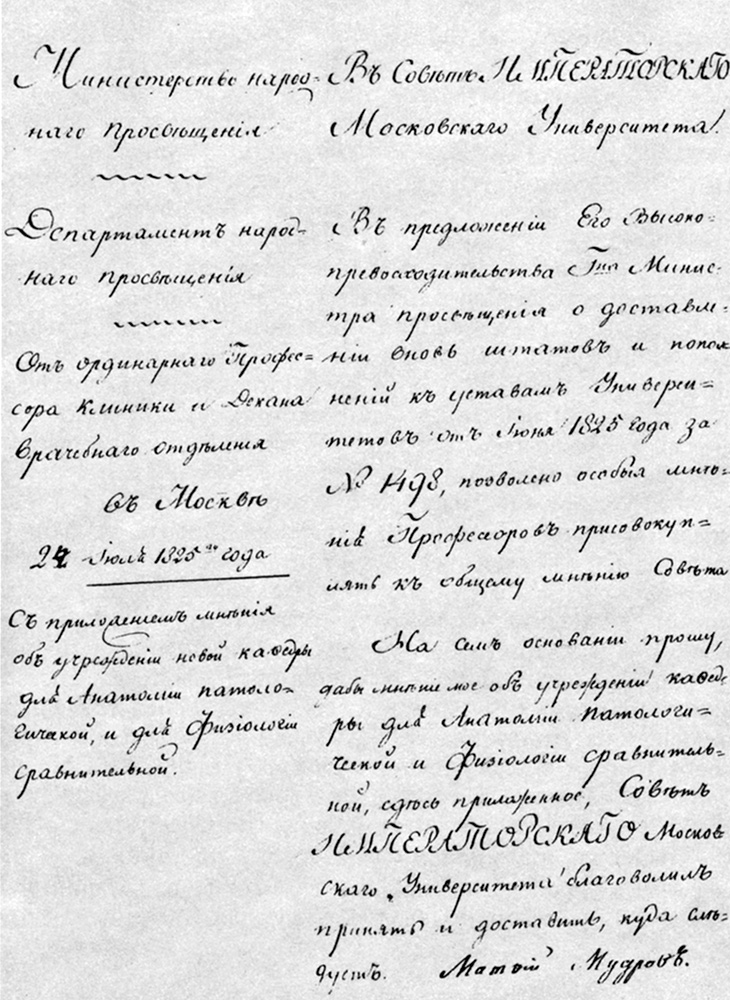 Министерство народ-
наго просвѣщенія
Департаментъ народ-
наго просвѣщенія
Отъ ординарнаго Профес-
сора Клиники и Декана
врачебнаго отдѣленія
въ Москвѣ
24 Іюля 1825 го года
Съ приложеніемъ мнѣнія
объ учрежденіи новой каѳедры
для Анатоміи патоло-
гической, и для Физіологіи
сравнительной.
Въ Совѣтъ ИМПЕРАТОРСКАГО
Московскаго Университета.
Въ предложеніи Его Высоко-
превосходительства Гна Минис-
тра просвѣщенія о доставле-
ніи вновь штатовъ и попол
неній къ уставамъ Универси-
тетовъ отъ Іюня 1825 года за
№ 1498, позволено особыя мнѣ-
нія Профессоровъ присовокуп-
лять къ общему мнѣнію Совѣта
На семъ основаніи прошу,
дабы мнѣніе мое объ учрежденіи каѳед-
ры для Анатоміи патологи-
ческой и Физіологіи сравнитель-
ной, сдѣсь приложенное, Совѣтъ
ИМПЕРАТОРСКАГО Москов
скаго Университета благоволилъ
принять и доставить, куда слѣ-
дуетъ. Матѳій Мудровъ.